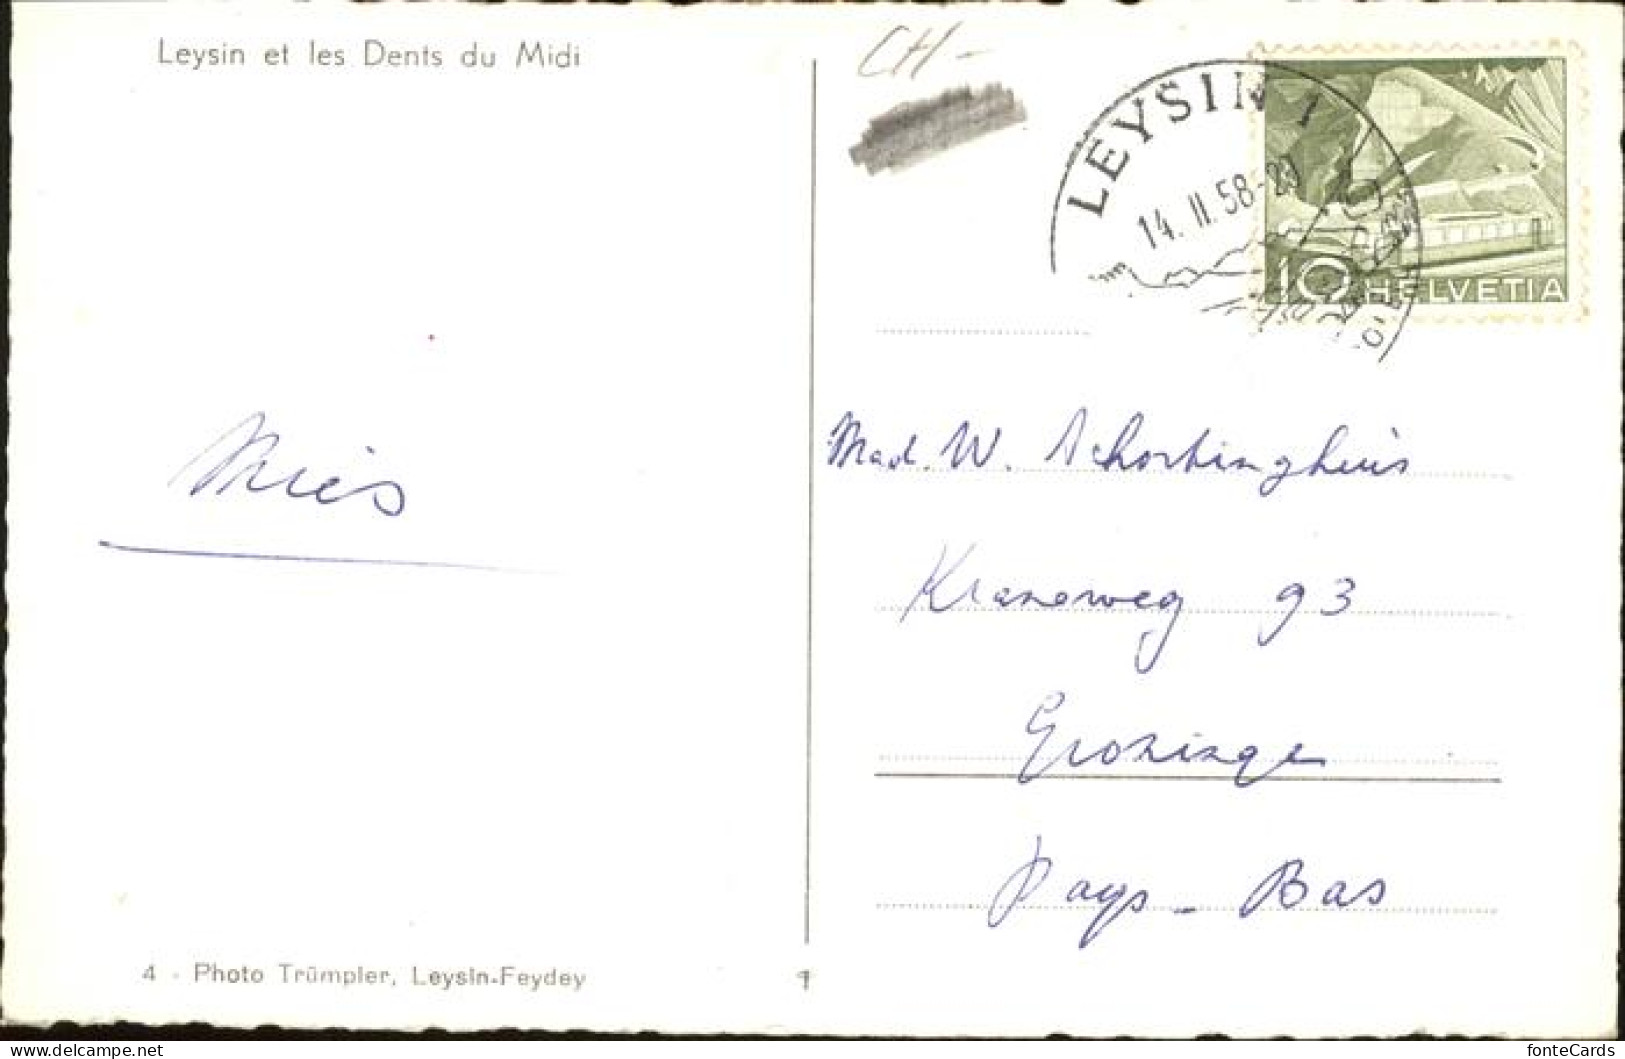 Leysin et les Dents du Midi
CH-
LEYSIN 1
14. II. 58-20
10 HELVETIA
Miès
Mad. W. Schortinghuis
Kraneweg 93
Groningen
Pays-Bas
4 - Photo Trümpler, Leysin-Feydey
fonteCards